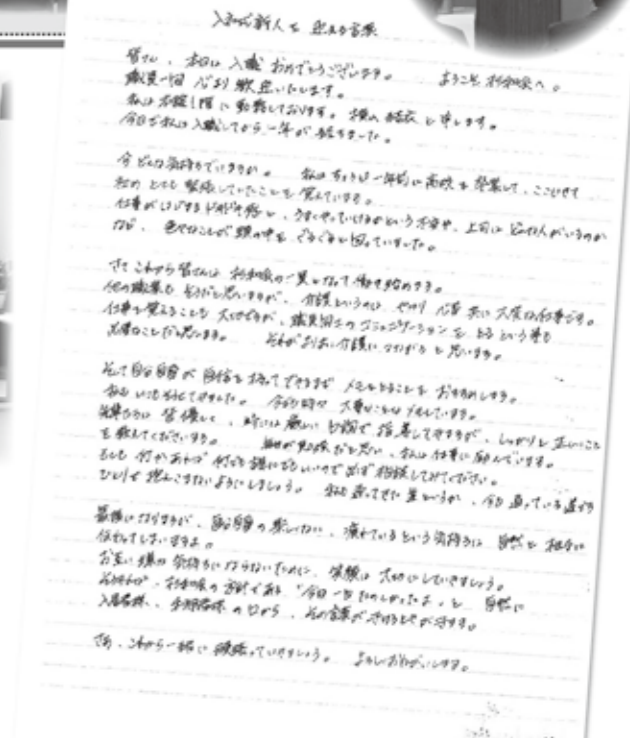 入社式新人を迎える言葉
皆さん、本日は入職おめでとうございます。 ようこそ杉和会へ。
職員一同心より歓迎いたします。
私は本館1階に勤務しております。横山 結衣と申します。
今日で私は入職してから一年が経ちました。
今どんな気持ちでいますか。 私はちょうど一年前に高校を卒業して、ここに
とても緊張していたことを覚えています。
仕事がはじまるドキドキ感と、うまくやっていけるかという不安や、上司はどんな人がいるのか
など、色々なことが頭の中をぐるぐると回っていました。
さてこれから皆さんは杉和会の一員となって働き始めます。
他の職業もそうだと思いますが、介護というのはやはり心身共に大変な仕事です。
仕事を覚えることも大切ですが、職員同士のコミュニケーションをとるという事も
大事なことだと思います。 それがよりよい介護につながると思います。
そして自分自身が自信を持ってできるまでメモをとることをおすすめします。
私もいつもそうしてきました。 今も時々大事なことはメモしています。
先輩方は皆優しく、時には厳しい口調で指導してきますが、しっかりと正しいこと
を教えてくださいます。 と思い、私は仕事に励んでいます。
もしも何かあれば何でも誰にでもいいので必ず相談してみてください。
ひとりで抱えこまないようにしましょう。 私も通ってきた道というか、今も通っている道です
最後になりますが、自分自身の楽しくない、疲れているという気持ちは自然と相手に
伝わってしまいますよ。
お互い嫌な気持ちにならないために、笑顔は大切にしていきましょう。
そうすれば、杉和会の方針である“今日一日たのしかったよ”と自然に
入居者様、利用者様の口から、その言葉が
さあ、これから一緒に頑張っていきましょう。 よろしくおねがいします。